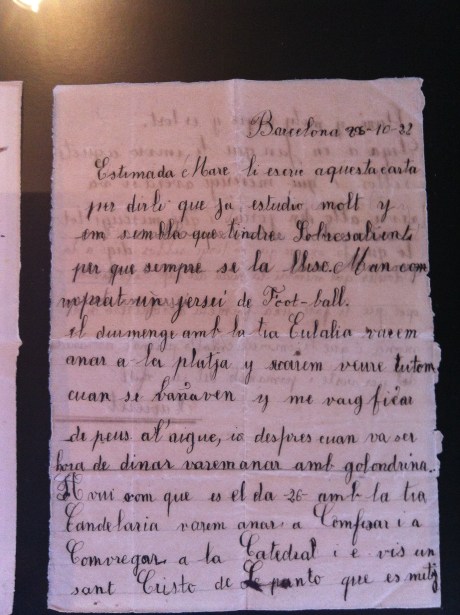 Barcelona 26-10-22
Estimada Mare li escric aquesta carta
per dirli que ja estudio molt y
em sembla que tindre Sobresalient
per que sempre se la lliso. Man com
un jersei de Foot-ball.
el diumenge amb la tia Eulalia varem
anar a la platja y varem veure tutom
cuan se bañaven y me vaig ficar
de peus al aigue, i despres cuan va ser
hora de dinar varem anar amb golondrina.
A vui com que es el dia -26- amb la tia
Candelaria varem anar a Comfesar i a
Comvregar a la Catedral i e vis un
sant Cristo de Lepanto que es mitj